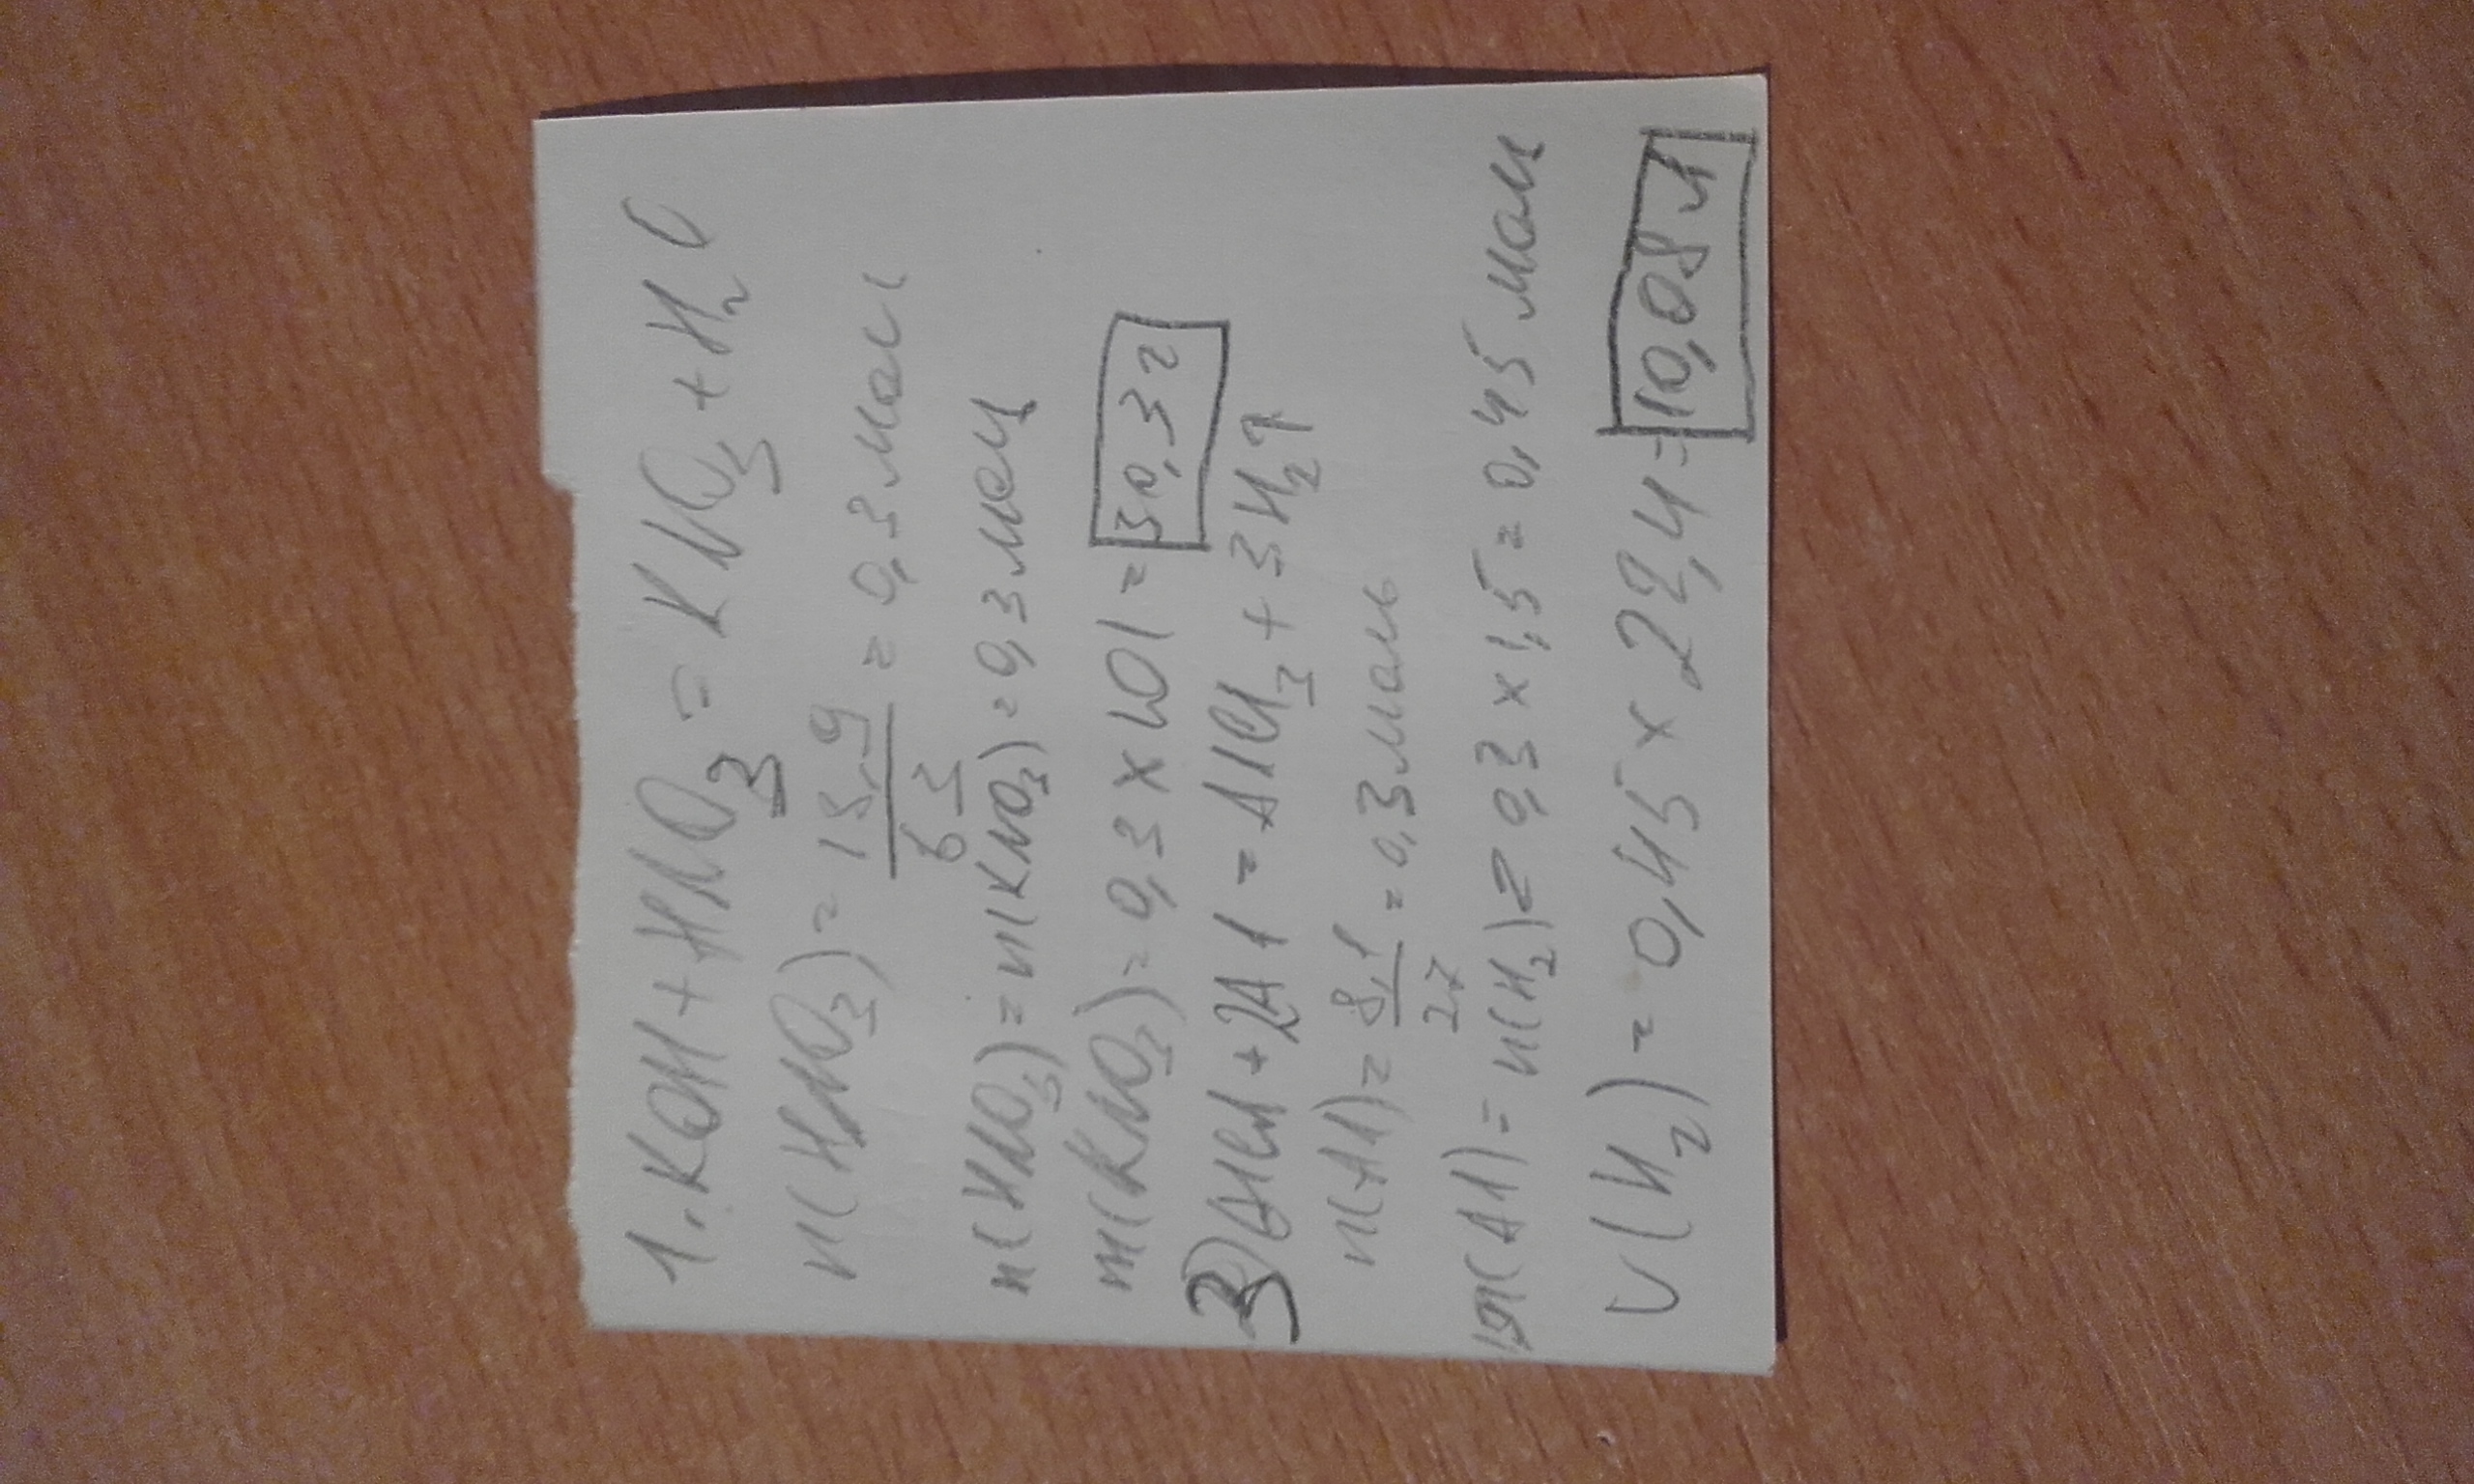 1. KOH + HNO3 = KNO3 + H2O
n(HNO3) = 18,9/63 = 0,3 моль
n(HNO3) = n(KNO3) = 0,3 моль
m(KNO3) = 0,3 x 101 = 30,3 г
3) 6HCl + 2Al = AlCl3 + 3H2↑
n(Al) = 8,1/27 = 0,3 моль
n(Al) = n(H2) = 0,3 x 1,5 = 0,45 моль
V(H2) = 0,45 x 22,4 = 10,08 л